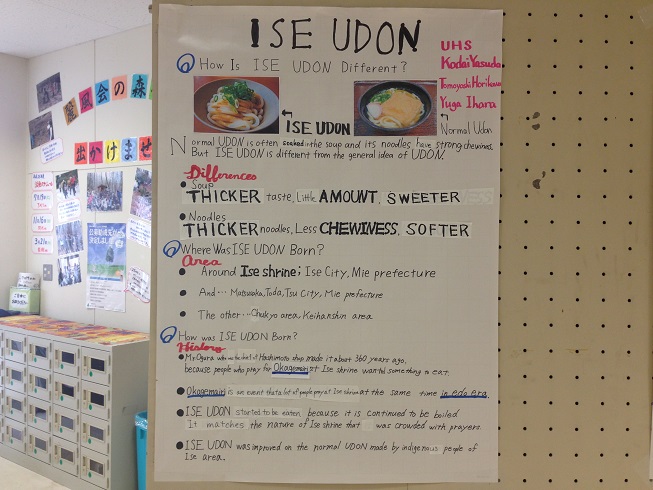 ISE UDON
UHS
Kodai Yasuda
Tomoyoshi Horikawa
Yuga Ihara
Q How Is ISE UDON Different?
ISE UDON
Normal Udon
Normal UDON is often soaked in the soup and its noodles have strong chewiness.
But ISE UDON is different from the general idea of UDON.
Differences
• Soup
THICKER taste, Little AMOUNT, SWEETER
• Noodles
THICKER noodles, Less CHEWINESS, SOFTER
Q Where Was ISE UDON Born?
Area
• Around Ise shrine; Ise City, Mie prefecture
• And... Matsusaka, Toda, Tsu City, Mie prefecture
• The other... Chukyo area, Keihanshin area
Q How was ISE UDON Born?
History
• Mr. Ogura who was the chief of Hashimoto shop made it about 360 years ago.
because people who pray for Okagemairi at Ise shrine wanted something to eat.
• Okagemairi is an event that a lot of people pray at Ise shrine at the same time in edo era.
• ISE UDON started to be eaten because it is continued to be boiled
It matches the nature of Ise shrine that was crowded with prayers.
• ISE UDON was improved on the normal UDON made by indigenous people of
Ise area.
風会の森
出かけませ